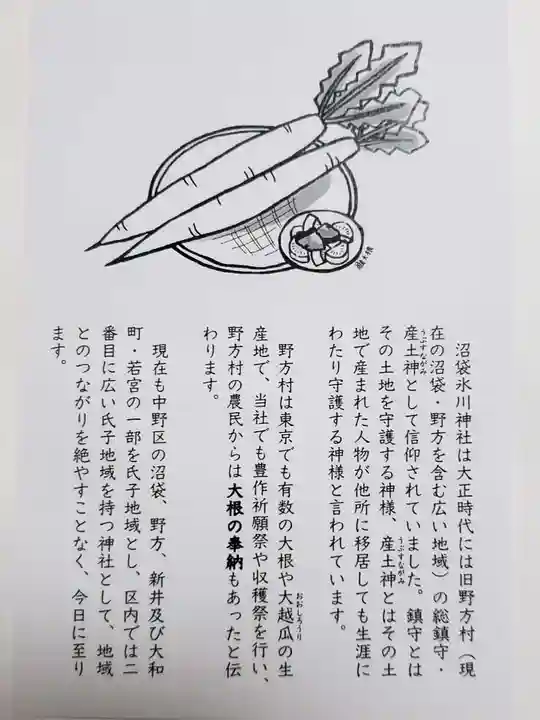 沼袋氷川神社は大正時代には旧野方村（現
在の沼袋・野方を含む広い地域）の総鎮守・
産土神として信仰されていました。鎮守とは
うぶすながみ
その土地を守護する神様、産土神とはその土
うぶすながみ
地で産まれた人物が他所に移居しても生涯に
わたり守護する神様と言われています。
野方村は東京でも有数の大根や大越瓜の生
おおしろうり
産地で、当社でも豊作祈願祭や収穫祭を行い、
野方村の農民からは大根の奉納もあったと伝
わります。
現在も中野区の沼袋、野方、新井及び大和
町・若宮の一部を氏子地域とし、区内では二
番目に広い氏子地域を持つ神社として、地域
とのつながりを絶やすことなく、今日に至り
ます。